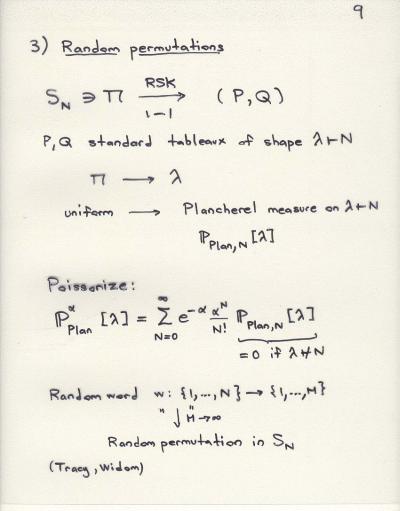 9
3) Random permutations
S_N ∋ π —RSK→ (P,Q)
1-1
P,Q standard tableaux of shape λ⊢N
π → λ
uniform → Plancherel measure on λ⊢N
ℙ_{Plan,N}[λ]
Poissonize:
ℙ^α_{Plan} [λ] = Σ_{N=0}^{∞} e^{-α} α^N/N! ℙ_{Plan,N}[λ]
=0 if λ⊬N
Random word w: {1,...,N} → {1,...,M}
" ↓ " M→∞
Random permutation in S_N
(Tracy, Widom)